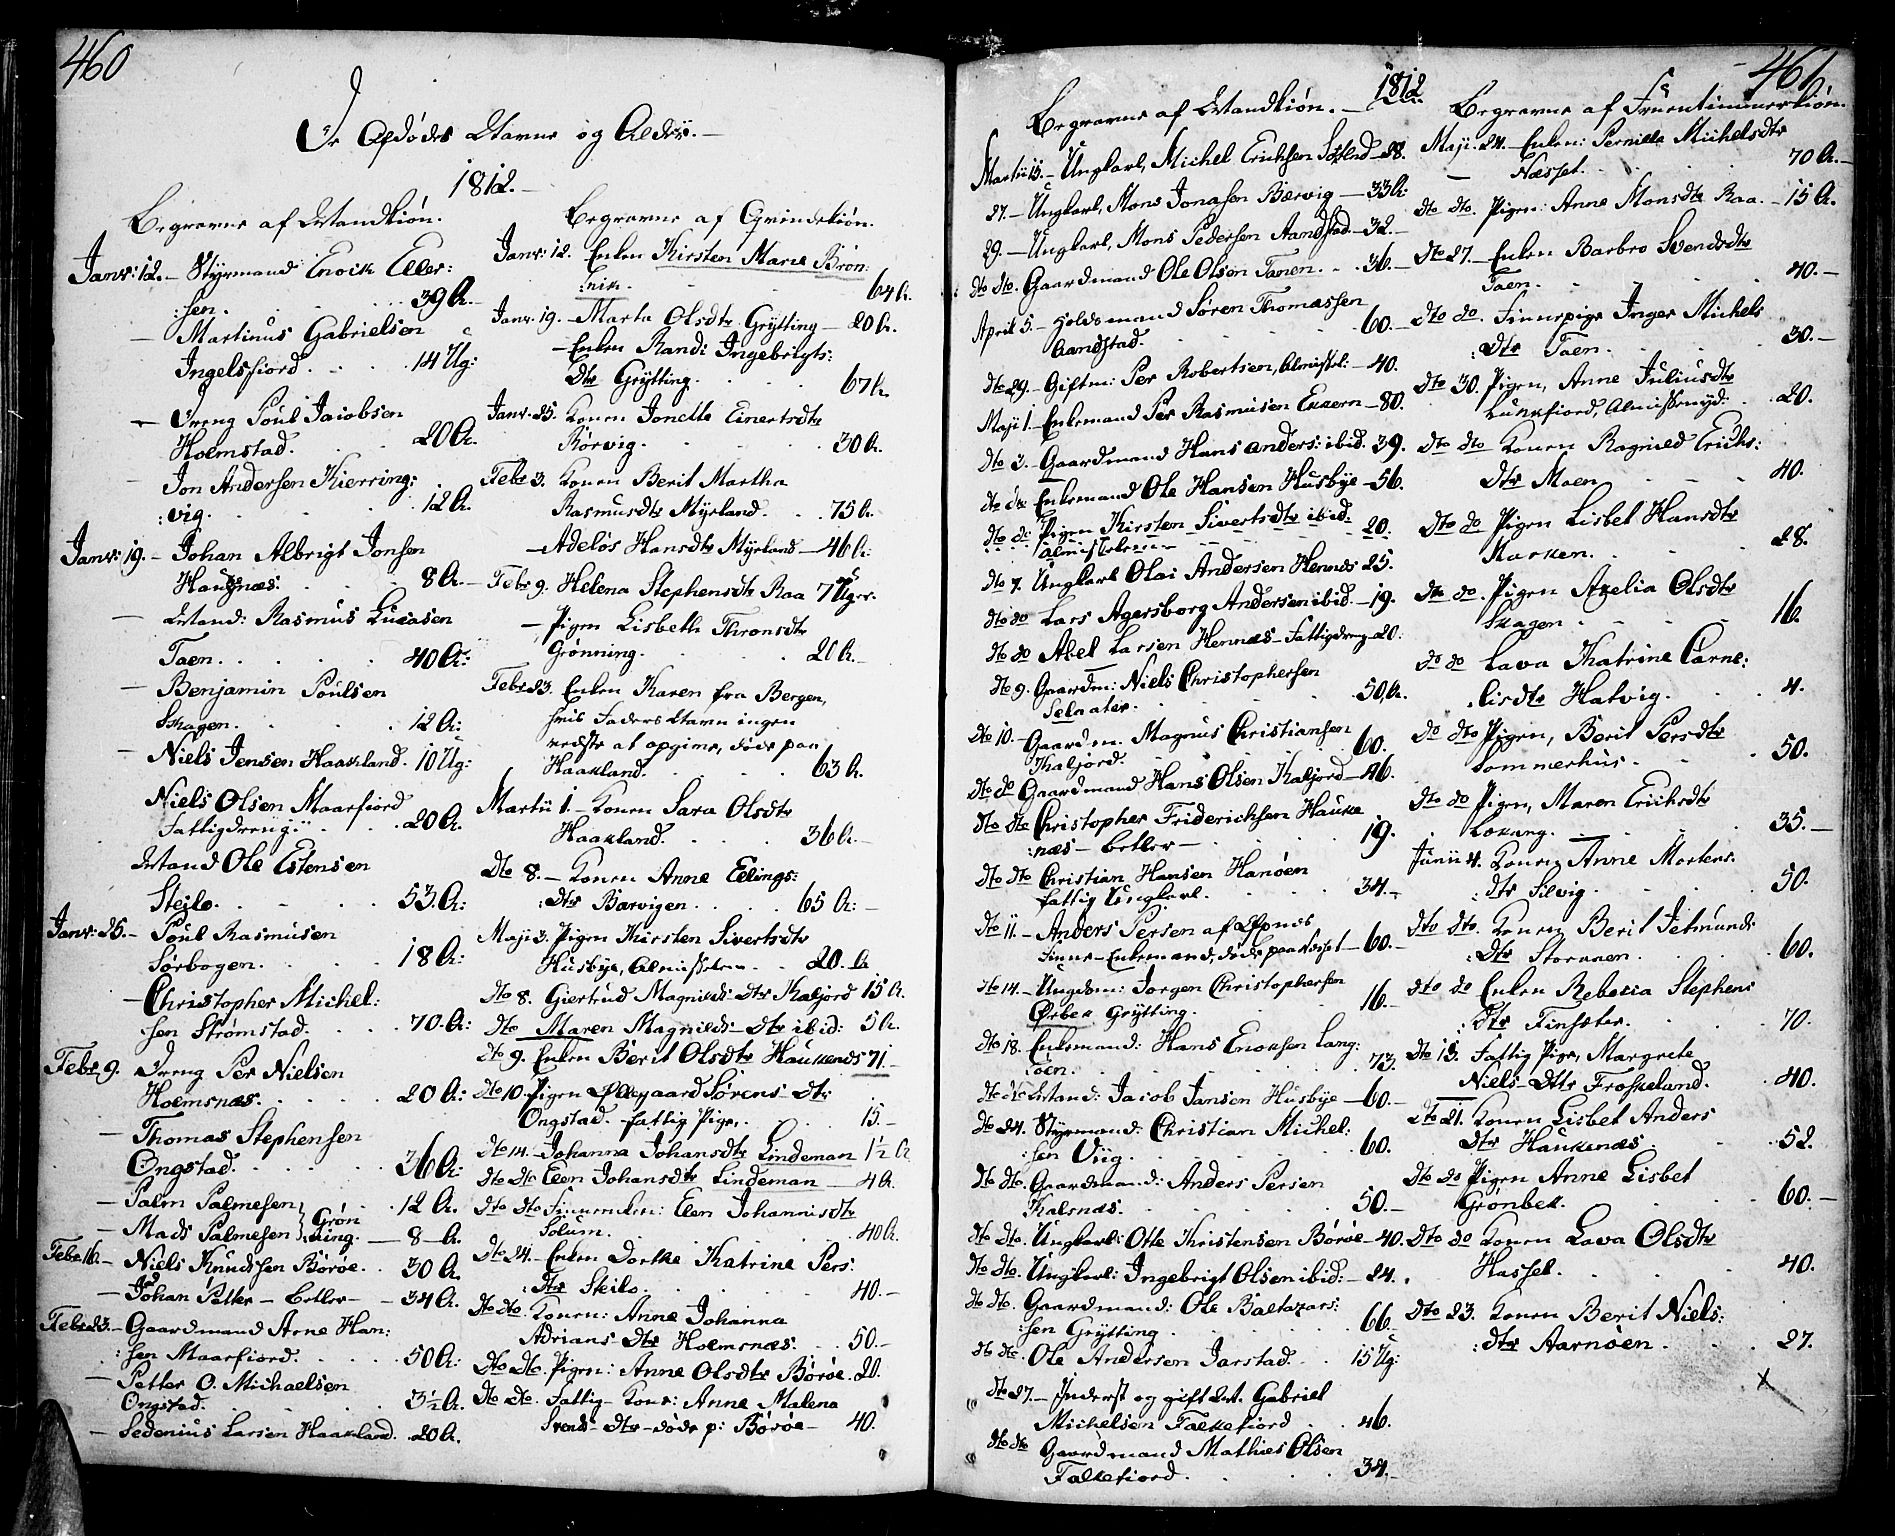 460
De Afdødes Navne og Alder.
1812.
Begravne af Mandkiøn.
Janr: 12. Styrmand Enoik Eller:
:sen. 39 A.
Martinus Gabrielsen
Ingelsfiord. 14 Ug:
Dreng Poul Jacobsen
Holmstad. 20 A.
Jon Andersen Kierring:
:vig. 12 A.
Janr: 19. Johan Albrigt Jonsen
Haugnæs. 8 A.
Mand: Rasmus Lucasen
Taen. 40 A:
Benjamin Poulsen
Skagen. 12 A:
Niels Jensen Haakland. 10 Ug:
Niels Olsen Maarfiord
Fattigdreng 20 A.
Mand Ole Estensen
Steilo. 53 A:
Janr: 25. Poul Rasmusen
Sørbogen. 18 A:
Christopher Michel:
:sen Strømstad. 70 A:
Febr 9. Dreng Per Nielsen
Holmsnæs. 20 A:
Thomas Stephensen
Ongstad. 36 A:
Palm Palmesen 12 A.
Mads Palmesen Grøn:ning. 8 A.
Febr 16. Niels Knudsen Børøe. 30 A.
Johan Petter - Betler 34 A.
Febr 23. Gaardmand Arne Han:
:sen Maarfiord. 50 A:
Petter O. Michaelsen
Ongstad. 3½ A.
Sedenius Larsen Haakland. 20 A.
Begravne af Qvindekiøn.
Janr: 12. Enken Kirsten Marie Brøn:
:nik. 64 A.
Janr: 19. Marta Olsdtr Grytting 20 A.
Enken Randi Ingebrigts:
Dtr Grytting. 67 A.
Janr: 25. Konen Jonetta Einertsdtr
Børvig. 30 A.
Febr 3. Konen Berit Martha
Rasmusdtr Myrland. 75 A.
Adelös Hansdtr Myrland 46 A:
Febr 9. Helena Stephensdtr Raa 7 Uger.
Pigen Lisbeth Thronsdtr
Grønning. 20 A.
Febr 23. Enken Karen fra Bergen,
hvis Faders Navn ingen
vedste at opgive, døde paa
Haakland. 63 A.
Martii 1. Konen Sara Olsdtr
Haakland. 36 A.
Dto 8. Konen Anne Ellings:
:Dtr Barvigen. 65 A:
Maji 3. Pigen Kirsten Sivertsdtr
Husbye, Almisselem. 20 A
Dto 8. Giertrud Magnilds-Dtr Kaljord 15 A.
Dto Maren Magnilds-Dtr ibid: 5 A.
Dto 9. Enken Berit Olsdtr Haukenæs 71.
Dto 10. Pigen Ollegaard Sørens-Dtr
Ongstad. fattig Pige. 15.
Dto 14. Johanna Johansdtr Lindeman 1½ A
Dto Dto Elen Johansdtr Lindeman 4 A.
Dto Dto Finnenken: Elen Johannisdtr
Solum. 40 A.
Dto 24. Enken Dortke Katrine Pers:
:Dtr Skilo. 40.
Dto Dto. Konen: Anne Johanna
Adrians-Dtr Holmsnæs. 50.
Dto Dto. Pigen: Anne Olsdtr Børøe. 20.
Dto Dto. Fattig-Kone: Anne Malena
Svends-Dtr døde p: Børøe 40.
461
1812
Begravne af Mandkiøn.
Martii 15. Ungkarl, Michel Erichsen Sortland 28.
27. Ungkarl, Mons Jonasen Bærvig 33 A:
29. Ungkarl, Mons Pedersen Aandstad. 32.
Dto Dto. Gaardmand Ole Olsen Tanen. 36.
April 5. Holdsmand Søren Thomassen
Aandstad. 60.
Dto 29. Giftm: Per Robertsen, Almissel: 40.
Maji 1. Enkemand Per Rasmusen Eekern 80.
Dto 3. Gaardmand Hans Anders: ibid. 39.
Dto Dto Enkemand Ole Hansen Husbye 56.
Dto Do Pigen Kirsten Sivertsdtr ibid: 20.
Almisselem
Dto 7. Ungkarl Olai Andersen Hennæs 25.
Dto Do Lars Agersborg Andersen ibid. 19.
Dto Do Abel Larsen Hennæs-Fattigdreng 20:
Dto 9. Gaardm: Niels Christophersen
Selnater. 50 A.
Dto 10. Gaardm. Magnus Christiansen
Kaljord. 60.
Dto Do Gaardmand Hans Olsen Kaljord 46.
Dto Dto Christopher Friderichsen Hauke
:næs - Betler 19.
Dto Dto Christian Hansen Hanøen
fattig Ungkarl. 34.
Dto 11. Anders Persen af
Finne-Enkemand, døde paa 60.
Dto 14. Ungdom: Jørgen Christophersen
Ørbek Grytting. 16.
Dto 18. Enkemand: Hans Enoksen Lang:
:øen. 73.
Dto Do Mand: Jacob Jansen Husbye 60.
Dto 24. Styrmand: Christian Michel:
:sen Viig. 60.
Dto Dto. Gaardmand: Anders Persen
Kalsnæs. 50.
Dto Dto. Ungkarl: Otte Kristensen Børøe 40.
Dto Dto. Ungkarl: Ingebrigt Olsen ibid: 24.
Dto Dto. Gaardmand: Ole Baltazars:
:sen Grytting. 66.
Dto Dto. Ole Andersen Jarstad. 15 Ug:
Dto 27. Inderst og gift Mt. Gabriel
Michelsen Falkefiord 46.
Dto Dto Gaardmand Mathies Olsen
Falkefiord. 34.
Begravne af Fruentimmerkiøn.
Maji. 24. Enken: Pernille Michelsdtr
Næsset. 70 A.
Dto Dto. Pigen: Anne Monsdtr Raa. 15 A.
Dto 27. Enken Barbro Svendsdtr
Taen. 40.
Dto Do. Finnepige Inger Michels
:Dtr Taen. 30.
Dto 30. Pigen, Anne Juliusdtr
Lunkefiord, Almissenyd. 20.
Dto Dto Konen Ragnild Erichs:
Dtr Moen 40.
Dto Do Pigen Lisbet Hansdtr
Marken. 28.
Dto Do. Pigen Axelia Olsdtr
Skagen 16.
Do Do Lava Katrine Corne:
:lisdtr Hatvig. 4.
Do Dto Pigen, Berit Persdtr
Sommerhus. 50.
Dto Do Pigen, Maren Erichsdtr
Lokung. 35.
Junii 4. Konen Anne Mortens:
:Dtr Silvig. 50.
Dto Dto. Konen Berit Jetmunds
:Dtr Storknen. 60.
Dto Do Enken Rebecca Stephens
:Dtr Finsæter. 70.
Dto 13. Fattig Pige, Margrete
Niels-Dtr Froskeland. 40.
Dto 21. Konen Lisbet Anders
Dtr Haukenæs. 52.
Dto Do Pigen Anne Lisbet
Grønbek. 60.
Dto Do Konen Lava Olsdtr
Hassel. 40.
Dto 23. Konen Berit Niels:
:Dtr Aarnøen. 27.
x